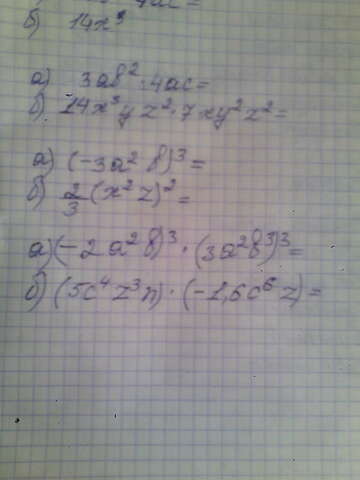 4ac=
б) 14x³
а) 3ab²·4ac=
б) 14x³yz²·7xy²z²=
а) (-3a²b)³=
б) 2/3(x²z)²=
а) (-2a²b)³·(3a²b³)³=
б) (5c⁴z³n)·(-1,6c⁶z)=